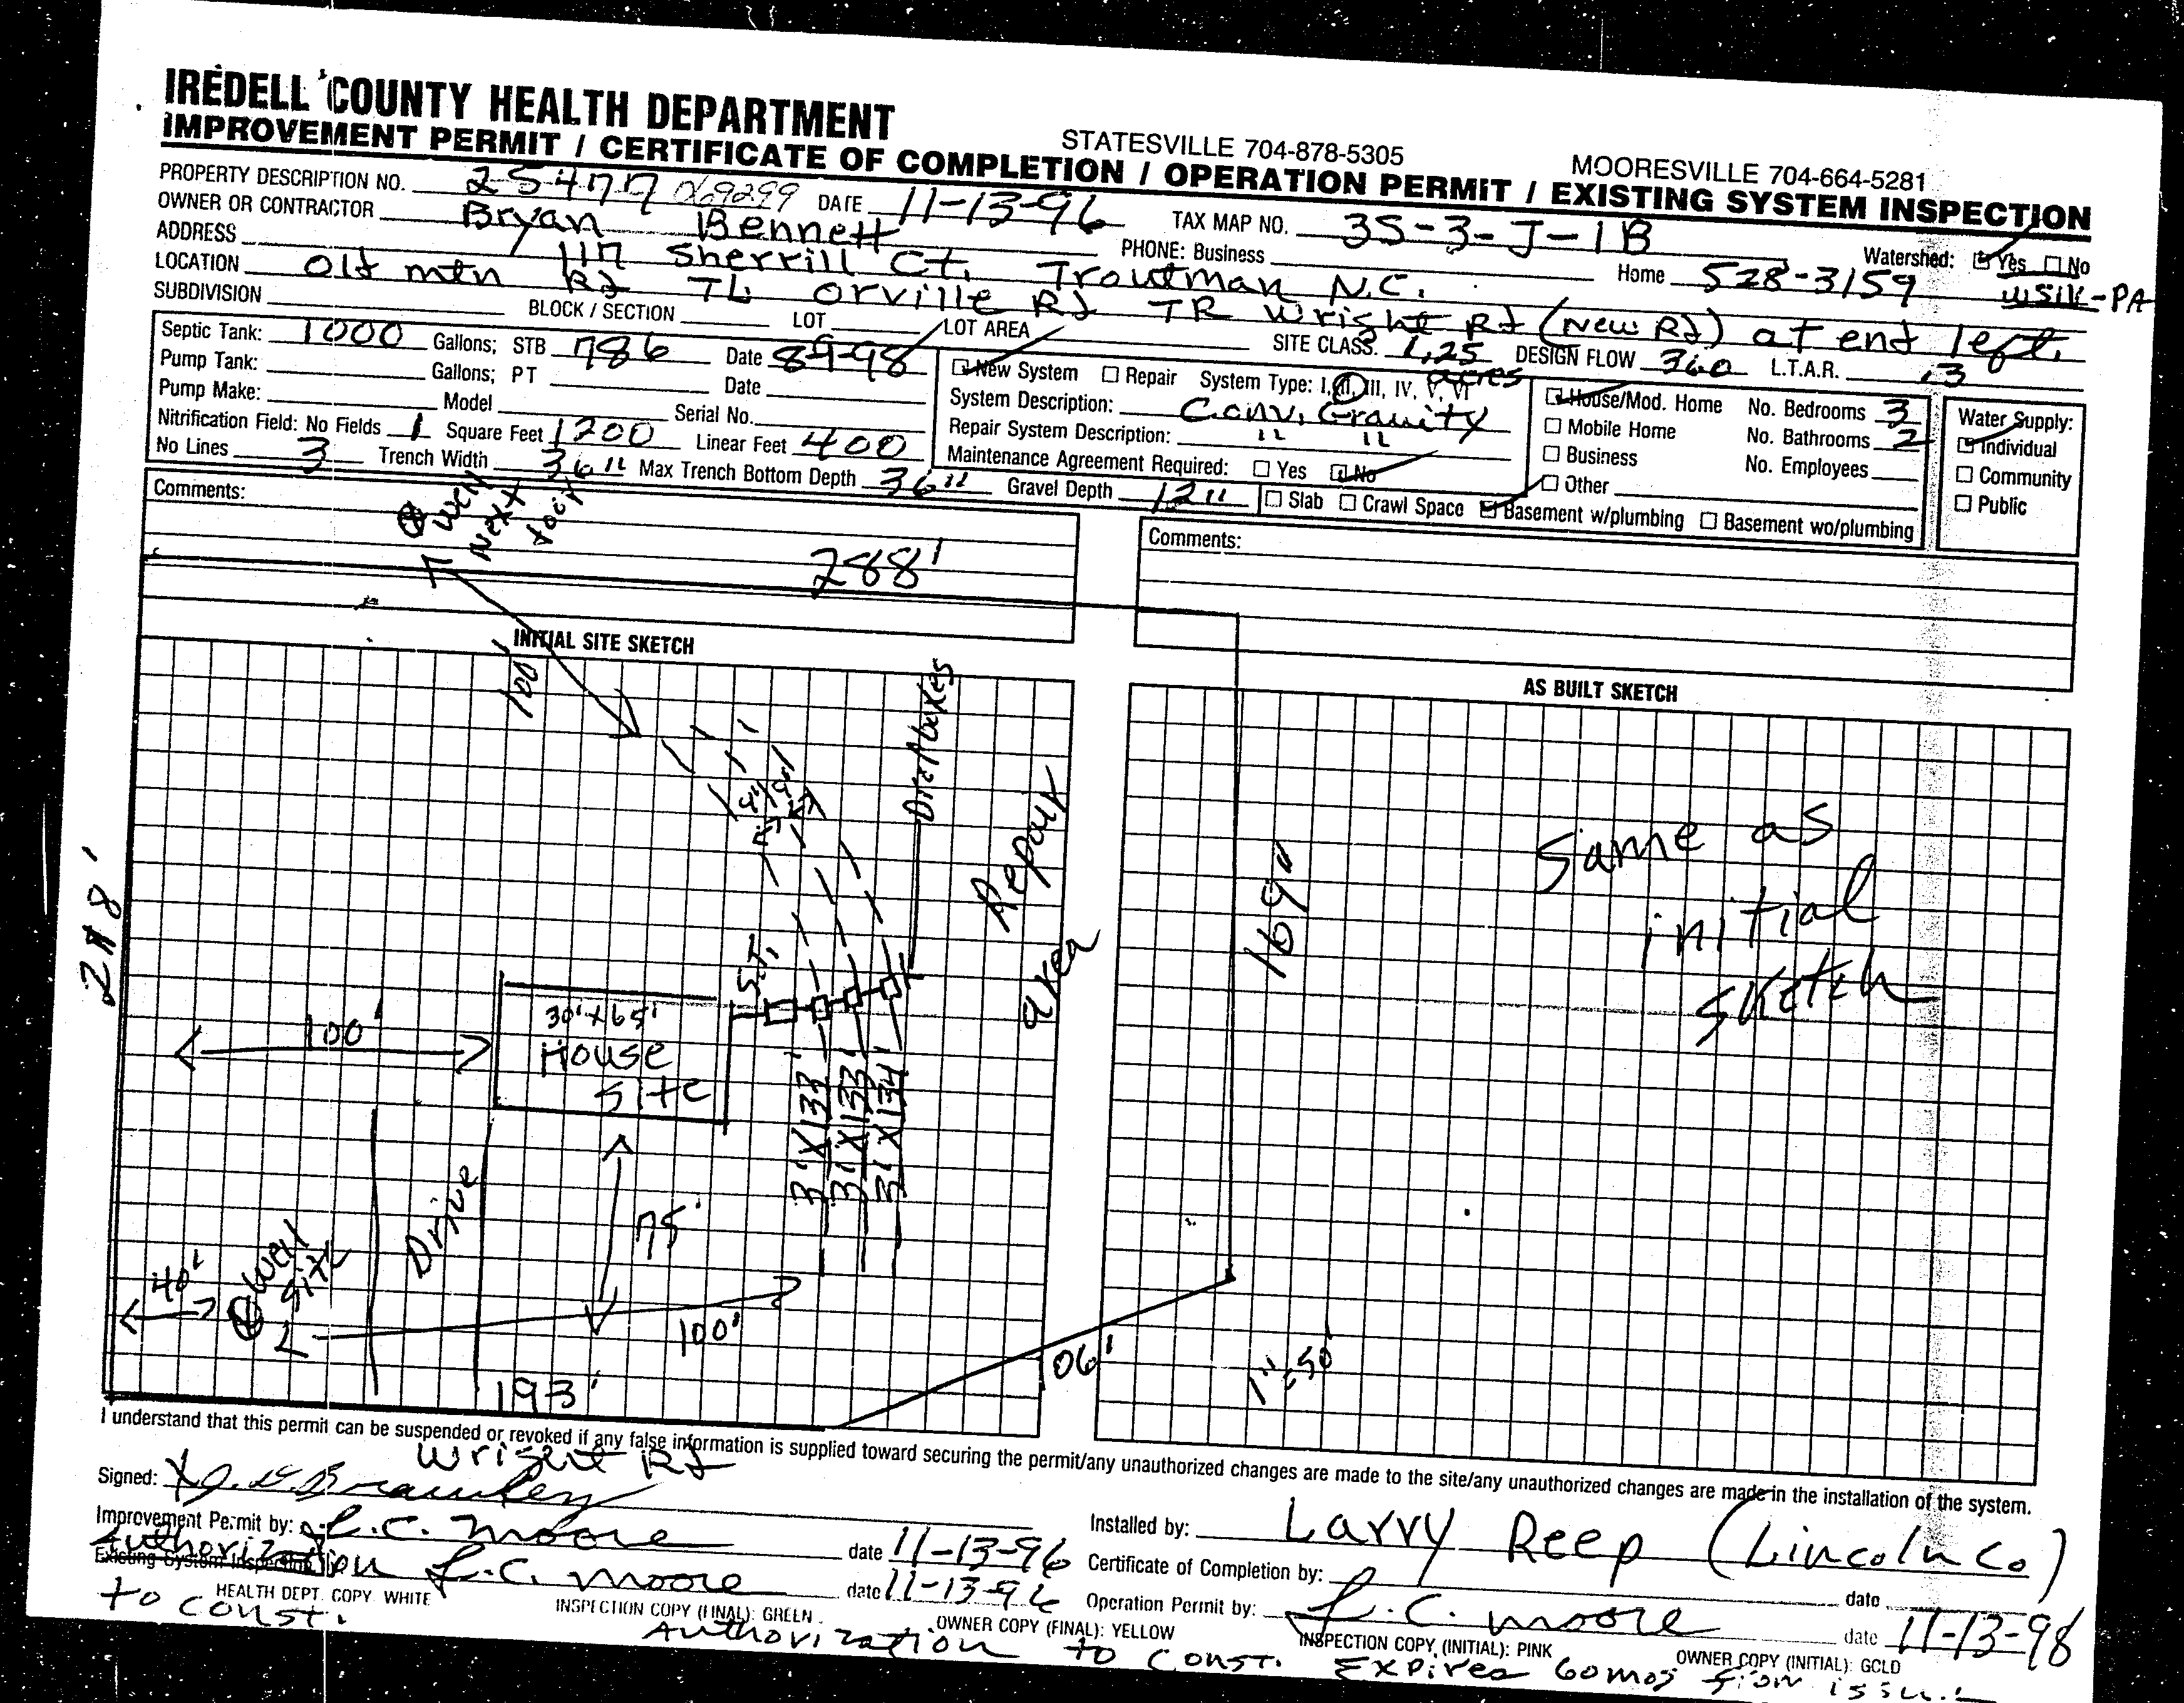 IREDELL COUNTY HEALTH DEPARTMENT
STATESVILLE 704-878-5305 MOORESVILLE 704-664-5281
IMPROVEMENT PERMIT / CERTIFICATE OF COMPLETION / OPERATION PERMIT / EXISTING SYSTEM INSPECTION
PROPERTY DESCRIPTION NO. 25477 DATE 11-13-96 TAX MAP NO. 3S-3-J-1B Watershed: Yes No
OWNER OR CONTRACTOR Bryan Bennett PHONE: Business Home 528-3159 WSIV-PA
ADDRESS 117 Sherrill Ct. Troutman N.C.
LOCATION Old mtn Rd TL Orville Rd TR Wright Rd (New Rd) at end left.
SUBDIVISION BLOCK / SECTION LOT LOT AREA SITE CLASS. 1.25 acres DESIGN FLOW 360 L.T.A.R. .3
Septic Tank: 1000 Gallons; STB 786 Date 8-9-98
Pump Tank: Gallons; PT Date
Pump Make: Model Serial No.
Nitrification Field: No Fields 1 Square Feet 1200 Linear Feet 400
No Lines 3 Trench Width 36" Max Trench Bottom Depth 36" Gravel Depth 12"
New System Repair System Type: I, II, III, IV, V, VI
System Description: Conv. Gravity
Repair System Description: " "
Maintenance Agreement Required: Yes No
House/Mod. Home No. Bedrooms 3
Mobile Home No. Bathrooms 2
Business No. Employees
Other
Water Supply:
Individual
Community
Public
Slab Crawl Space Basement w/plumbing Basement wo/plumbing
Comments:
Well
Next
288'
Comments:
INITIAL SITE SKETCH
100'
Dist Boxes
9' 9'
Repair
area
218'
S.T.
100'
30'x65'
House
Site
3'X133'
3'X133'
3'X134'
75'
Drive
Well
Site
40'
100'
193'
106'
AS BUILT SKETCH
169'
Same as
initial
sketch
1"=50'
I understand that this permit can be suspended or revoked if any false information is supplied toward securing the permit/any unauthorized changes are made to the site/any unauthorized changes are made in the installation of the system.
Wright Rd
Signed:
Improvement Permit by: L.C. Moore date 11-13-96
Authorization L.C. Moore date 11-13-96
Existing System Inspection
to const.
Installed by: Larry Reep (Lincoln Co)
Certificate of Completion by: date
Operation Permit by: L.C. Moore date 11-13-98
HEALTH DEPT. COPY WHITE INSPECTION COPY (FINAL): GREEN OWNER COPY (FINAL): YELLOW INSPECTION COPY (INITIAL): PINK OWNER COPY (INITIAL): GOLD
Authorization to const. Expires 60 mos from issue